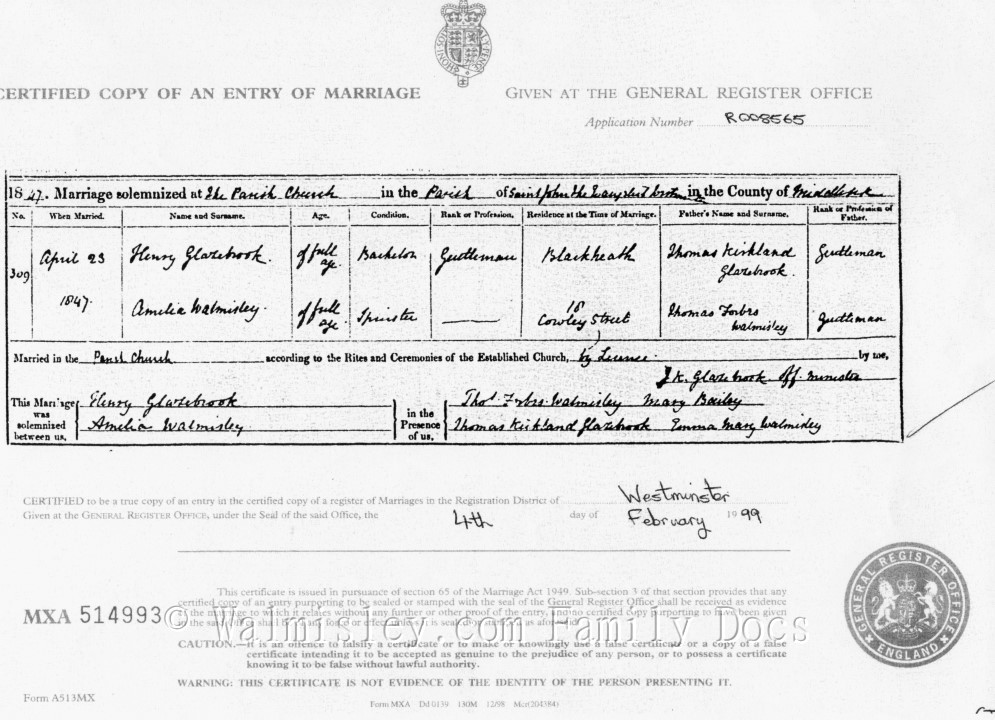 HONI SOIT QUI MAL Y PENSE
CERTIFIED COPY OF AN ENTRY OF MARRIAGE GIVEN AT THE GENERAL REGISTER OFFICE
Application Number R008565
1847. Marriage solemnized at The Parish Church in the Parish of Saint John the Evangelist in the County of Middlesex
No. When Married. Name and Surname. Age. Condition. Rank or Profession. Residence at the Time of Marriage. Father's Name and Surname. Rank or Profession of Father.
309 April 23 1847. Henry Glazebrook. of full age. Bachelor Gentleman Blackheath Thomas Kirkland Glazebrook. Gentleman
Amelia Walmisley. of full age. Spinster 18 Cowley Street Thomas Forbes Walmisley Gentleman
Married in the Parish Church according to the Rites and Ceremonies of the Established Church, by Licence. by me,
J.K. Glazebrook Off. Minister
This Marriage was solemnized between us, Henry Glazebrook Amelia Walmisley in the Presence of us, Thos. Forbes Walmisley Mary Bailey Thomas Kirkland Glazebrook Emma Mary Walmisley
CERTIFIED to be a true copy of an entry in the certified copy of a register of Marriages in the Registration District of Westminster
Given at the GENERAL REGISTER OFFICE, under the Seal of the said Office, the 4th day of February 1999
This certificate is issued in pursuance of section 65 of the Marriage Act 1949. Sub-section 3 of that section provides that any
certified copy of an entry purporting to be sealed or stamped with the seal of the General Register Office shall be received as evidence
of the marriage to which it relates without any further or other proof of the entry, and no certified copy purporting to have been given
in the said Office shall be of any force or effect unless it is sealed or stamped as aforesaid.
MXA 514993
© Walmisley.com Family Docs
CAUTION.—It is an offence to falsify a certificate or to make or knowingly use a false certificate or a copy of a false
certificate intending it to be accepted as genuine to the prejudice of any person, or to possess a certificate
knowing it to be false without lawful authority.
WARNING: THIS CERTIFICATE IS NOT EVIDENCE OF THE IDENTITY OF THE PERSON PRESENTING IT.
GENERAL REGISTER OFFICE
ENGLAND
Form A513MX
Form MXA Dd 0139 130M 12/98 Mcr(204384)